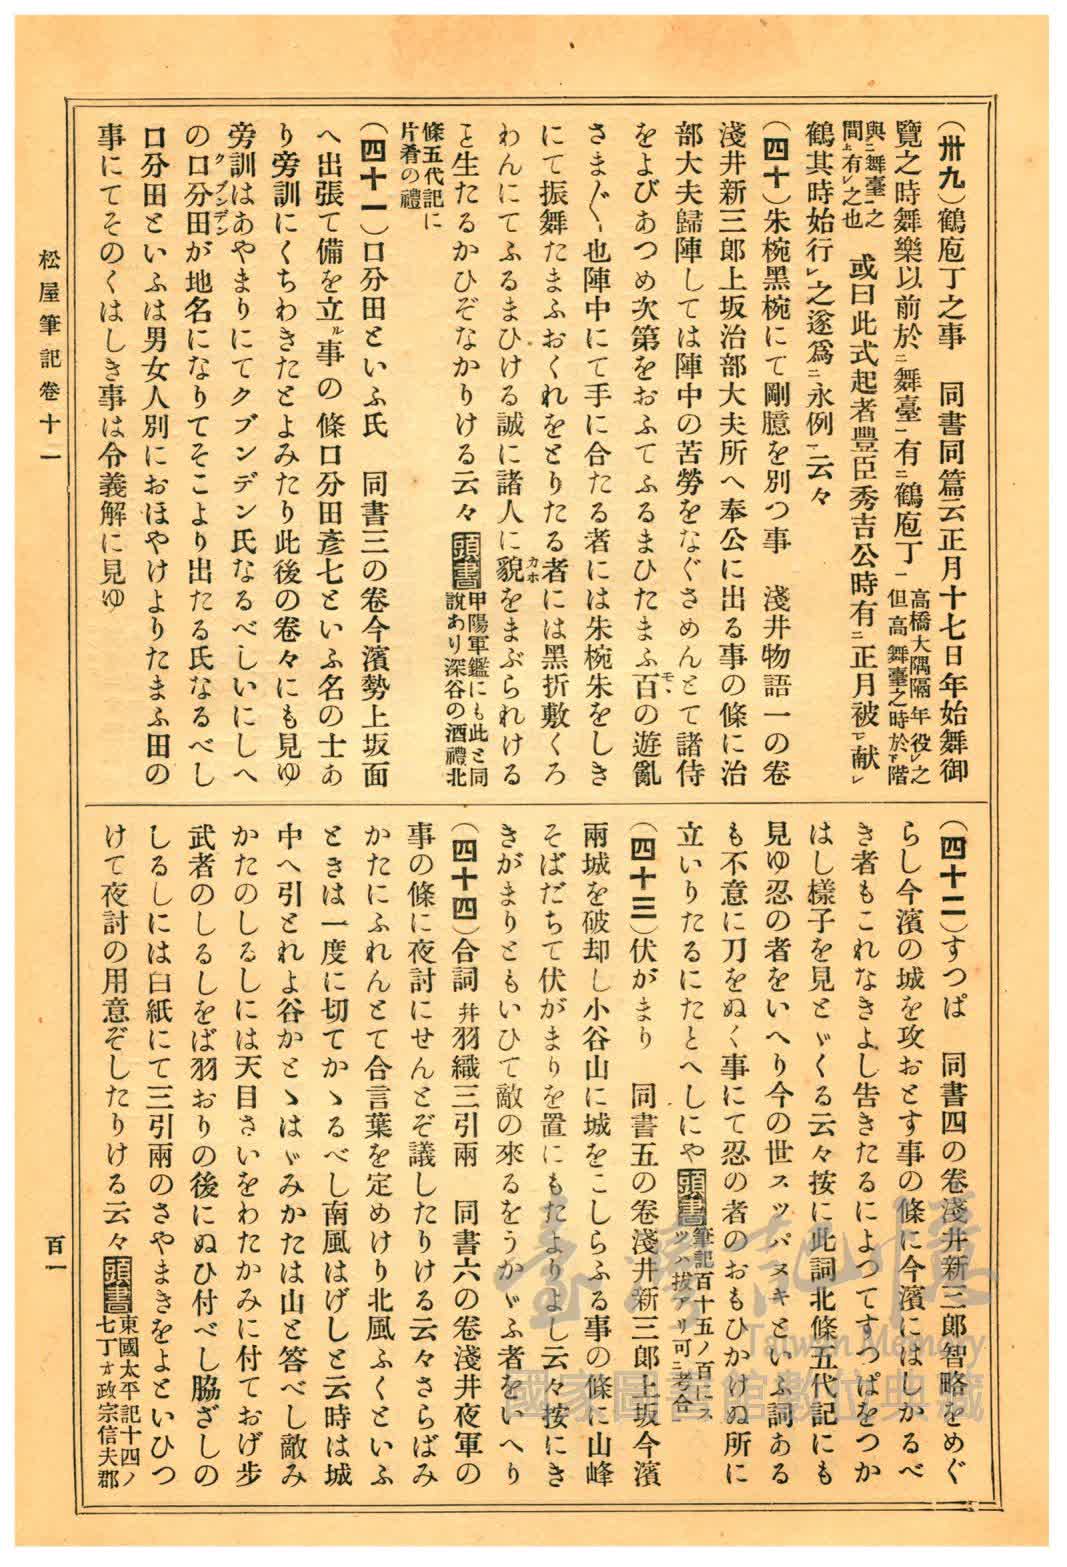 (卅九)鶴庖丁之事　同書同篇云正月十七日年始舞御
覽之時舞樂以前於二舞臺一有二鶴庖丁一高橋大隅隔年役レ之但高舞臺之時於下階
與二舞臺一之間上有レ之也　或曰此式起者豐臣秀吉公時有二正月被レ献レ
鶴其時始行レ之遂爲二永例一云々
(四十)朱椀黑椀にて剛臆を別つ事　淺井物語一の卷
淺井新三郎上坂治部大夫所へ奉公に出る事の條に治
部大夫歸陣しては陣中の苦勞をなぐさめんとて諸侍
をよびあつめ次第をおふてふるまひたまふ百モヽの遊亂
さま〴〵也陣中にて手に合たる者には朱椀朱をしき
にて振舞たまふおくれをとりたる者には黑折敷くろ
わんにてふるまひける誠に諸人に貌カホをまぶられける
こと生たるかひぞなかりける云々頭書甲陽軍鑑にも此と同說あり深谷の酒禮北
條五代記に片肴の禮
(四十一)口分田といふ氏　同書三の卷今濱勢上坂面
へ出張て備を立ル事の條口分田彥七といふ名の士あ
り旁訓にくちわきたとよみたり此後の卷々にも見ゆ
旁訓はあやまりにてクブンデン氏なるべしいにしへ
の口分田クブンデンが地名になりてそこより出たる氏なるべし
口分田といふは男女人別におほやけよりたまふ田の
事にてそのくはしき事は令義解に見ゆ
(四十二)すつぱ　同書四の卷淺井新三郎智略をめぐ
らし今濱の城を攻おとす事の條に今濱にはしかるべ
き者もこれなきよし告きたるによつてすつぱをつか
はし樣子を見とゞくる云々按に此詞北條五代記にも
見ゆ忍の者をいへり今の世スツパヌキといふ詞ある
も不意に刀をぬく事にて忍の者のおもひかけぬ所に
立いりたるにたとへしにや頭書筆記百十五ノ百にスツハ拔アリ可二考合一
(四十三)伏がまり　同書五の卷淺井新三郎上坂今濱
兩城を破却し小谷山に城をこしらふる事の條に山峰
そばだちて伏がまりを置にもたよりよし云々按にき
きがまりともいひて敵の來るをうかゞふ者をいへり
(四十四)合詞幷羽織三引兩　同書六の卷淺井夜軍の
事の條に夜討にせんとぞ議したりける云々さらばみ
かたにふれんとて合言葉を定めけり北風ふくといふ
ときは一度に切てかゝるべし南風はげしと云時は城
中へ引とれよ谷かとゝはゞみかたは山と答べし敵み
かたのしるしには天目さいをわたかみに付ておげ步
武者のしるしをば羽おりの後にぬひ付べし脇ざしの
しるしには白紙にて三引兩のさやまきをよといひつ
けて夜討の用意ぞしたりける云々頭書東國太平記十四ノ七丁オ政宗信夫郡
松屋筆記卷十一
百一
臺灣記憶
Taiwan Memory
國家圖書館數位典藏